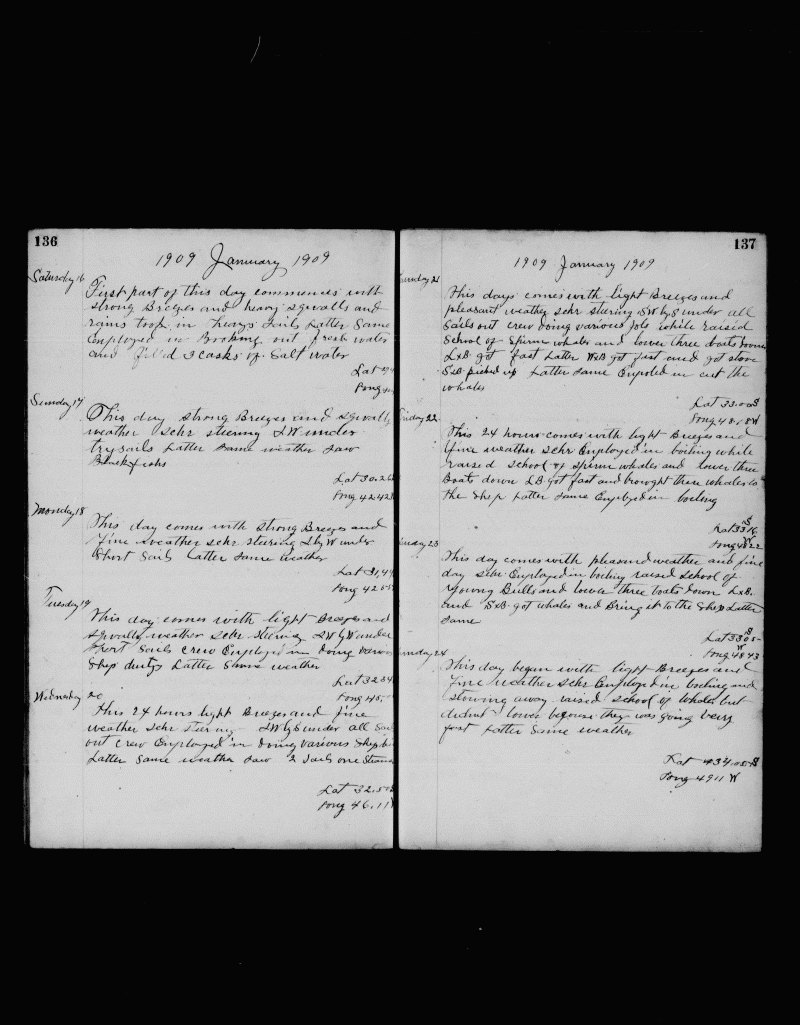 136
1909 January 1909
Saturday 16
First part of this day commences with
strong Breezes and heavy squalls and
rains took in heavy sails Latter Same
Employed in Breaking out fresh water
and filled casks of Salt water
Lat
Long
Sunday 17
This day strong Breezes and squally
weather Schr steering SW under
trysails Latter Same weather Saw
Blackfish
Lat 30.26
Long 42 42
Monday 18
This day comes with strong Breezes and
fine weather schr steering under
Short Sails Latter Same weather
Lat 31,49
Long 42
Tuesday 19
This day comes with light Breezes and
squally weather Schr steering SW under
Short Sails crew Employed in doing various
Ship dutys Latter Same weather
Lat 32 34
Long 45
Wednesday 20
This 24 hours light Breezes and fine
weather Schr SW by S under all Sail
out crew Employed in doing various Ship
Latter Same weather Saw 2 Sails one Steamer
Lat 32.50
Long 46.11
137
1909 January 1909
Thursday 21
This days comes with light Breezes and
pleasant weather Schr steering SW by S under all
Sails out crew doing various jobs while raised
School of Sperm whales and lower three boats down
LxB got fast Latter WxB got fast and got stove
SxB picked up Latter Same Employed in cut the
whales
Lat 33.00 S
Long 48.08 W
Friday 22
This 24 hours comes with light Breezes and
fine weather schr Employed in boiling while
raised School of Sperm whales and lower three
Boats down LB got fast and brought three whales to
the Ship Latter Same Employed in boiling
Lat 33 16 S
Long 48 22 W
23
This day comes with pleasand weather and fine
day Schr Employed in boiling raised School of
young Bulls and lower three boats down LxB.
and SxB. got whales and Bring it to the Ship Latter
Same
Lat 33 05 S
Long 48 43 W
24
This day began with light Breezes and
fine weather Schr Employed in boiling and
stowing away raised School of whales but
didnt lower because they was going very
fast Latter Same weather
Lat 34.05 S
Long 49 11 W